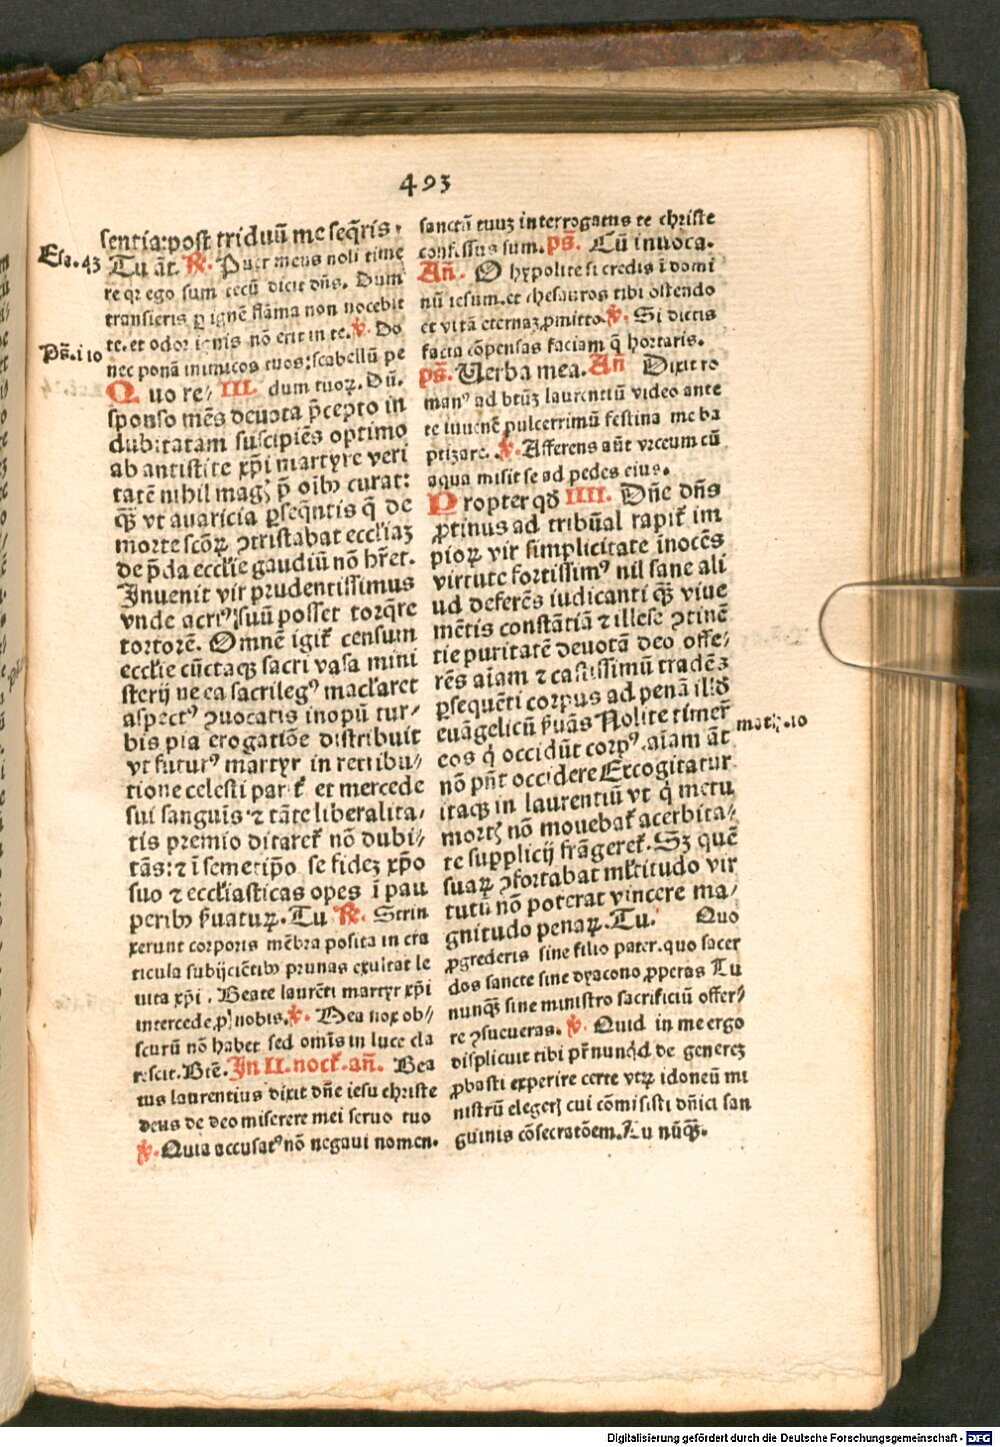 493
sentia: post triduū me seq̄ris.
Esa. 43
Tu āt. ℟. Puer meus noli time
re qꝛ ego sum tecū dicit dn̄s. Dum
transieris ꝑ ignē flāma non nocebit
te. et odor ignis nō erit in te. ℣. Do
Ps̄. i10
nec ponā inimicos tuos: scabellū pe
Quo re⸗ III. dum tuoꝝ. Dū.
sponso mēs deuota p̄cepto in
dubitatam suscipiēs optimo
ab antistite xp̄i martyre veri
tatē nihil magꝭ p̄ oībꝫ curat:
qꝫ̄ vt auaricia ꝑseq̄ntis q̄ de
morte scōꝝ ꝯtristabat eccl'iaꝫ
de p̄da eccl'ie gaudiū nō hr̄et.
Inuenit vir prudentissimus
vnde acriꝰ suū posset torq̄re
tortorē. Omnē igiť censum
eccl'ie cūctaqꝫ sacri vasa mini
sterij ne ea sacrilegꝰ macl'aret
aspectꝰ ꝯuocatis inopū tur⸗
bis pia erogatiōe distribuit
vt futurꝰ martyr in retribu⸗
tione celesti pariť et mercede
sui sanguīs ⁊ tāte liberalita⸗
tis premio ditareť nō dubi⸗
tās: ⁊ ī semetip̄o se fideꝫ xp̄o
suo ⁊ eccl'iasticas opes ī pau
peribꝫ s̄uatuꝝ. Tu ℟. Strin
xerunt corporis mēbra posita in cra
ticula subijciētibꝫ prunas exultat le
uita xp̄i. Beate laurēti martyr xp̄i
intercede ꝓ nobis. ℣. Mea nox ob⸗
scurū nō habet sed omīs in luce cla
rescit. Btē. In II. nocť. an̄. Bea
tus laurentius dixit dn̄e iesu christe
deus de deo miserere mei seruo tuo
℣. Quia accusatꝰ nō negaui nomen.
sanctū tuuꝫ interrogatus te christe
confessus sum. ps̄. Cū inuoca.
An̄. O hypolite si credis ī domi
nū iesum. et thesauros tibi ostendo
et vitā eternaꝫ ꝓmitto. ℣. Si dictis
facta cōpensas faciam q̄ hortaris.
ps̄. Uerba mea. An̄ Dixit ro
manꝰ ad btūꝫ laurentiū video ante
te iuuenē pulcerrimū festina me ba
ptizare. ℣. Afferens aūt vrceum cū
aqua misit se ad pedes eius.
Propter qđ IIII. Dn̄e dn̄s
ꝓtinus ad tribūal rapiť im
pioꝝ vir simplicitate īnocēs
virtute fortissimꝰ nil sane ali
ud deferēs iudicanti qꝫ̄ viue
mētis constātiā ⁊ illese ꝯtinē
tie puritatē deuotā deo offe⸗
rēs aīam ⁊ castissimū tradēꝫ
ꝑsequēti corpus ad penā illđ
euāgelicū s̄uās Nolite timeť
math. 10
eos q̇ occidūt corpꝰ. aīam āt
nō pn̄t occidere Excogitatur
itaqꝫ in laurentiū vt q̇ metu
mortꝭ nō mouebať acerbita⸗
te supplicij frāgereť. Sꝫ quē
suaꝝ ꝯfortabat ml'titudo vir
tutū nō poterat vincere ma⸗
gnitudo penaꝝ. Tu. Quo
ꝓgrederis sine filio pater. quo sacer
dos sancte sine dyacono ꝓperas Tu
nunqꝫ̄ sine ministro sacrificiū offer⸗
re ꝯsueueras. ℣. Quid in me ergo
displicuit tibi pr̄ nunqd de genereꝫ
ꝓbasti experire certe vtꝝ idoneū mi
nistrū elegerꝭ cui cōmisisti dn̄ici san
guinis cōsecratōem. Tu nūqꝫ̄.
Digitalisierung gefördert durch die Deutsche Forschungsgemeinschaft - DFG